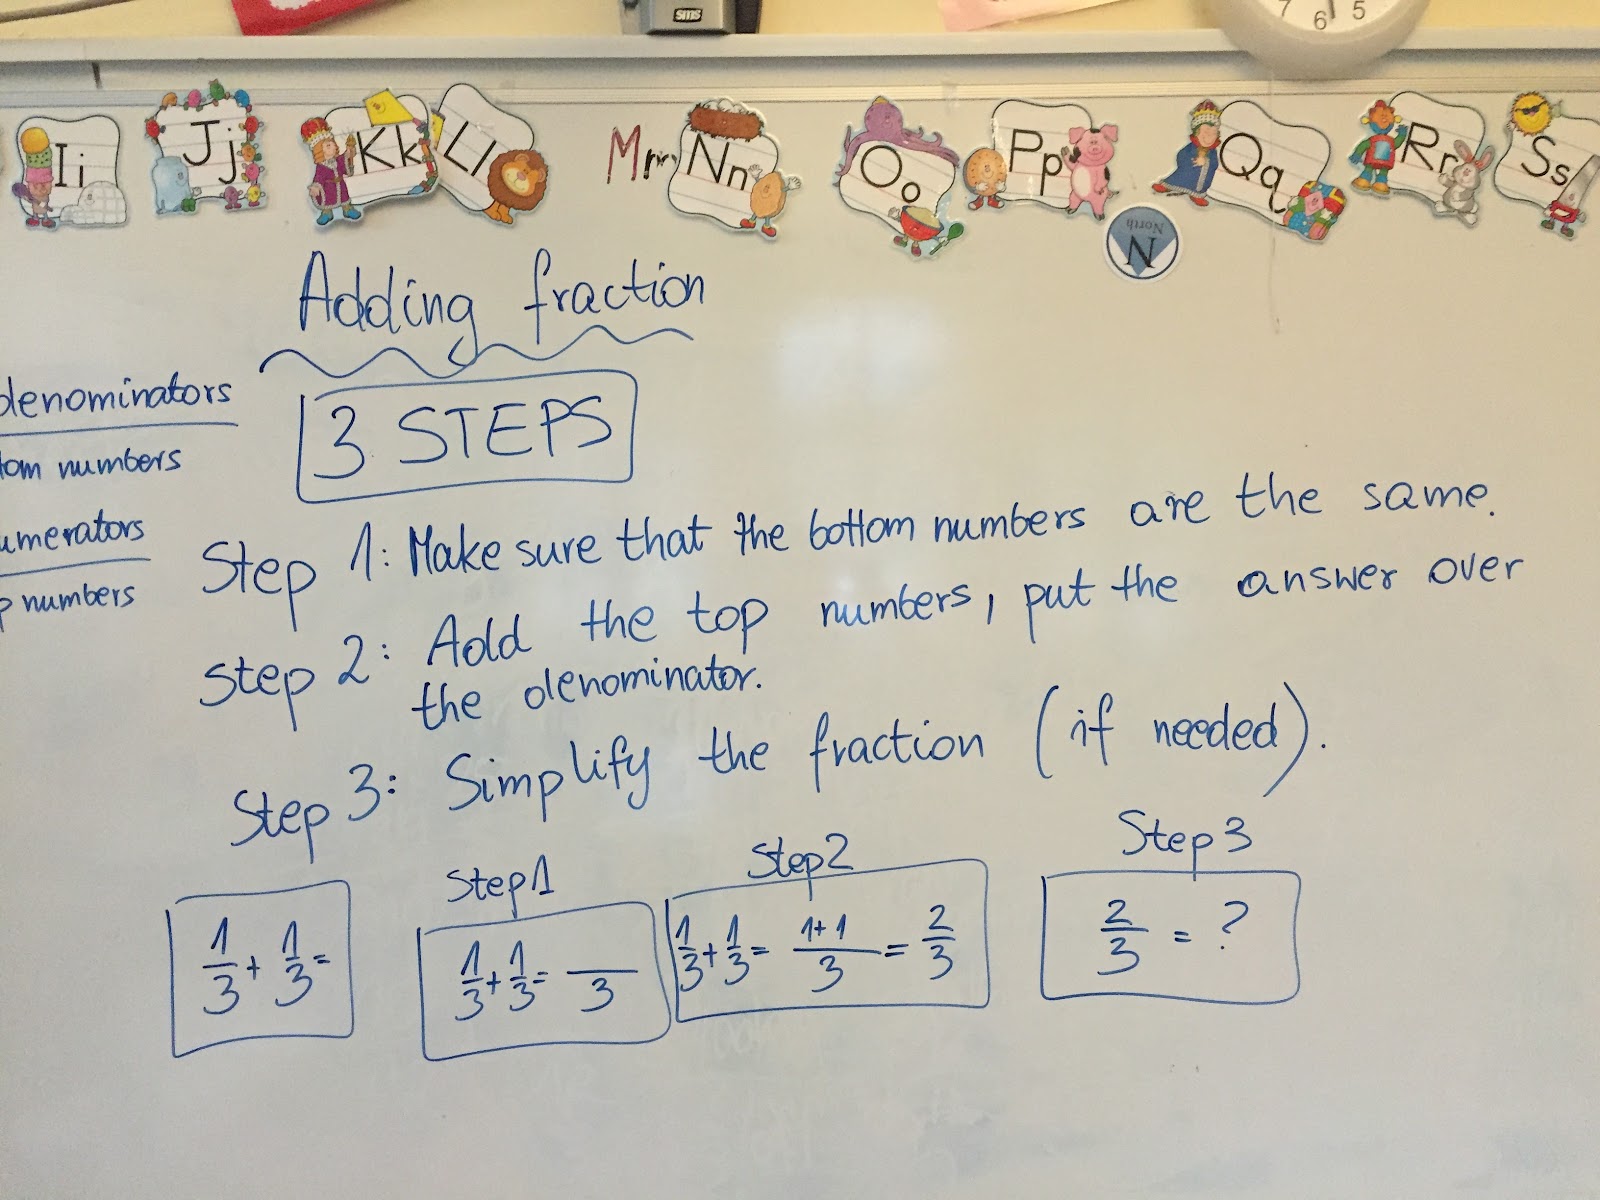 sms
7 6 5
Ii Jj Kk Ll Mm Nn Oo Pp Qq Rr Ss
N North
Adding fraction
3 STEPS
denominators
tom numbers
umerators
p numbers
Step 1: Make sure that the bottom numbers are the same.
Step 2: Add the top numbers, put the answer over
the denominator.
Step 3: Simplify the fraction (if needed).
Step 1 Step 2 Step 3
1/3 + 1/3 =
1/3 + 1/3 = /3
1/3 + 1/3 = 1+1/3 = 2/3
2/3 = ?